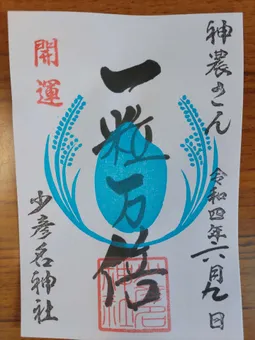 神農さん
令和四年六月九日
一粒万倍
開運
少彦名神社